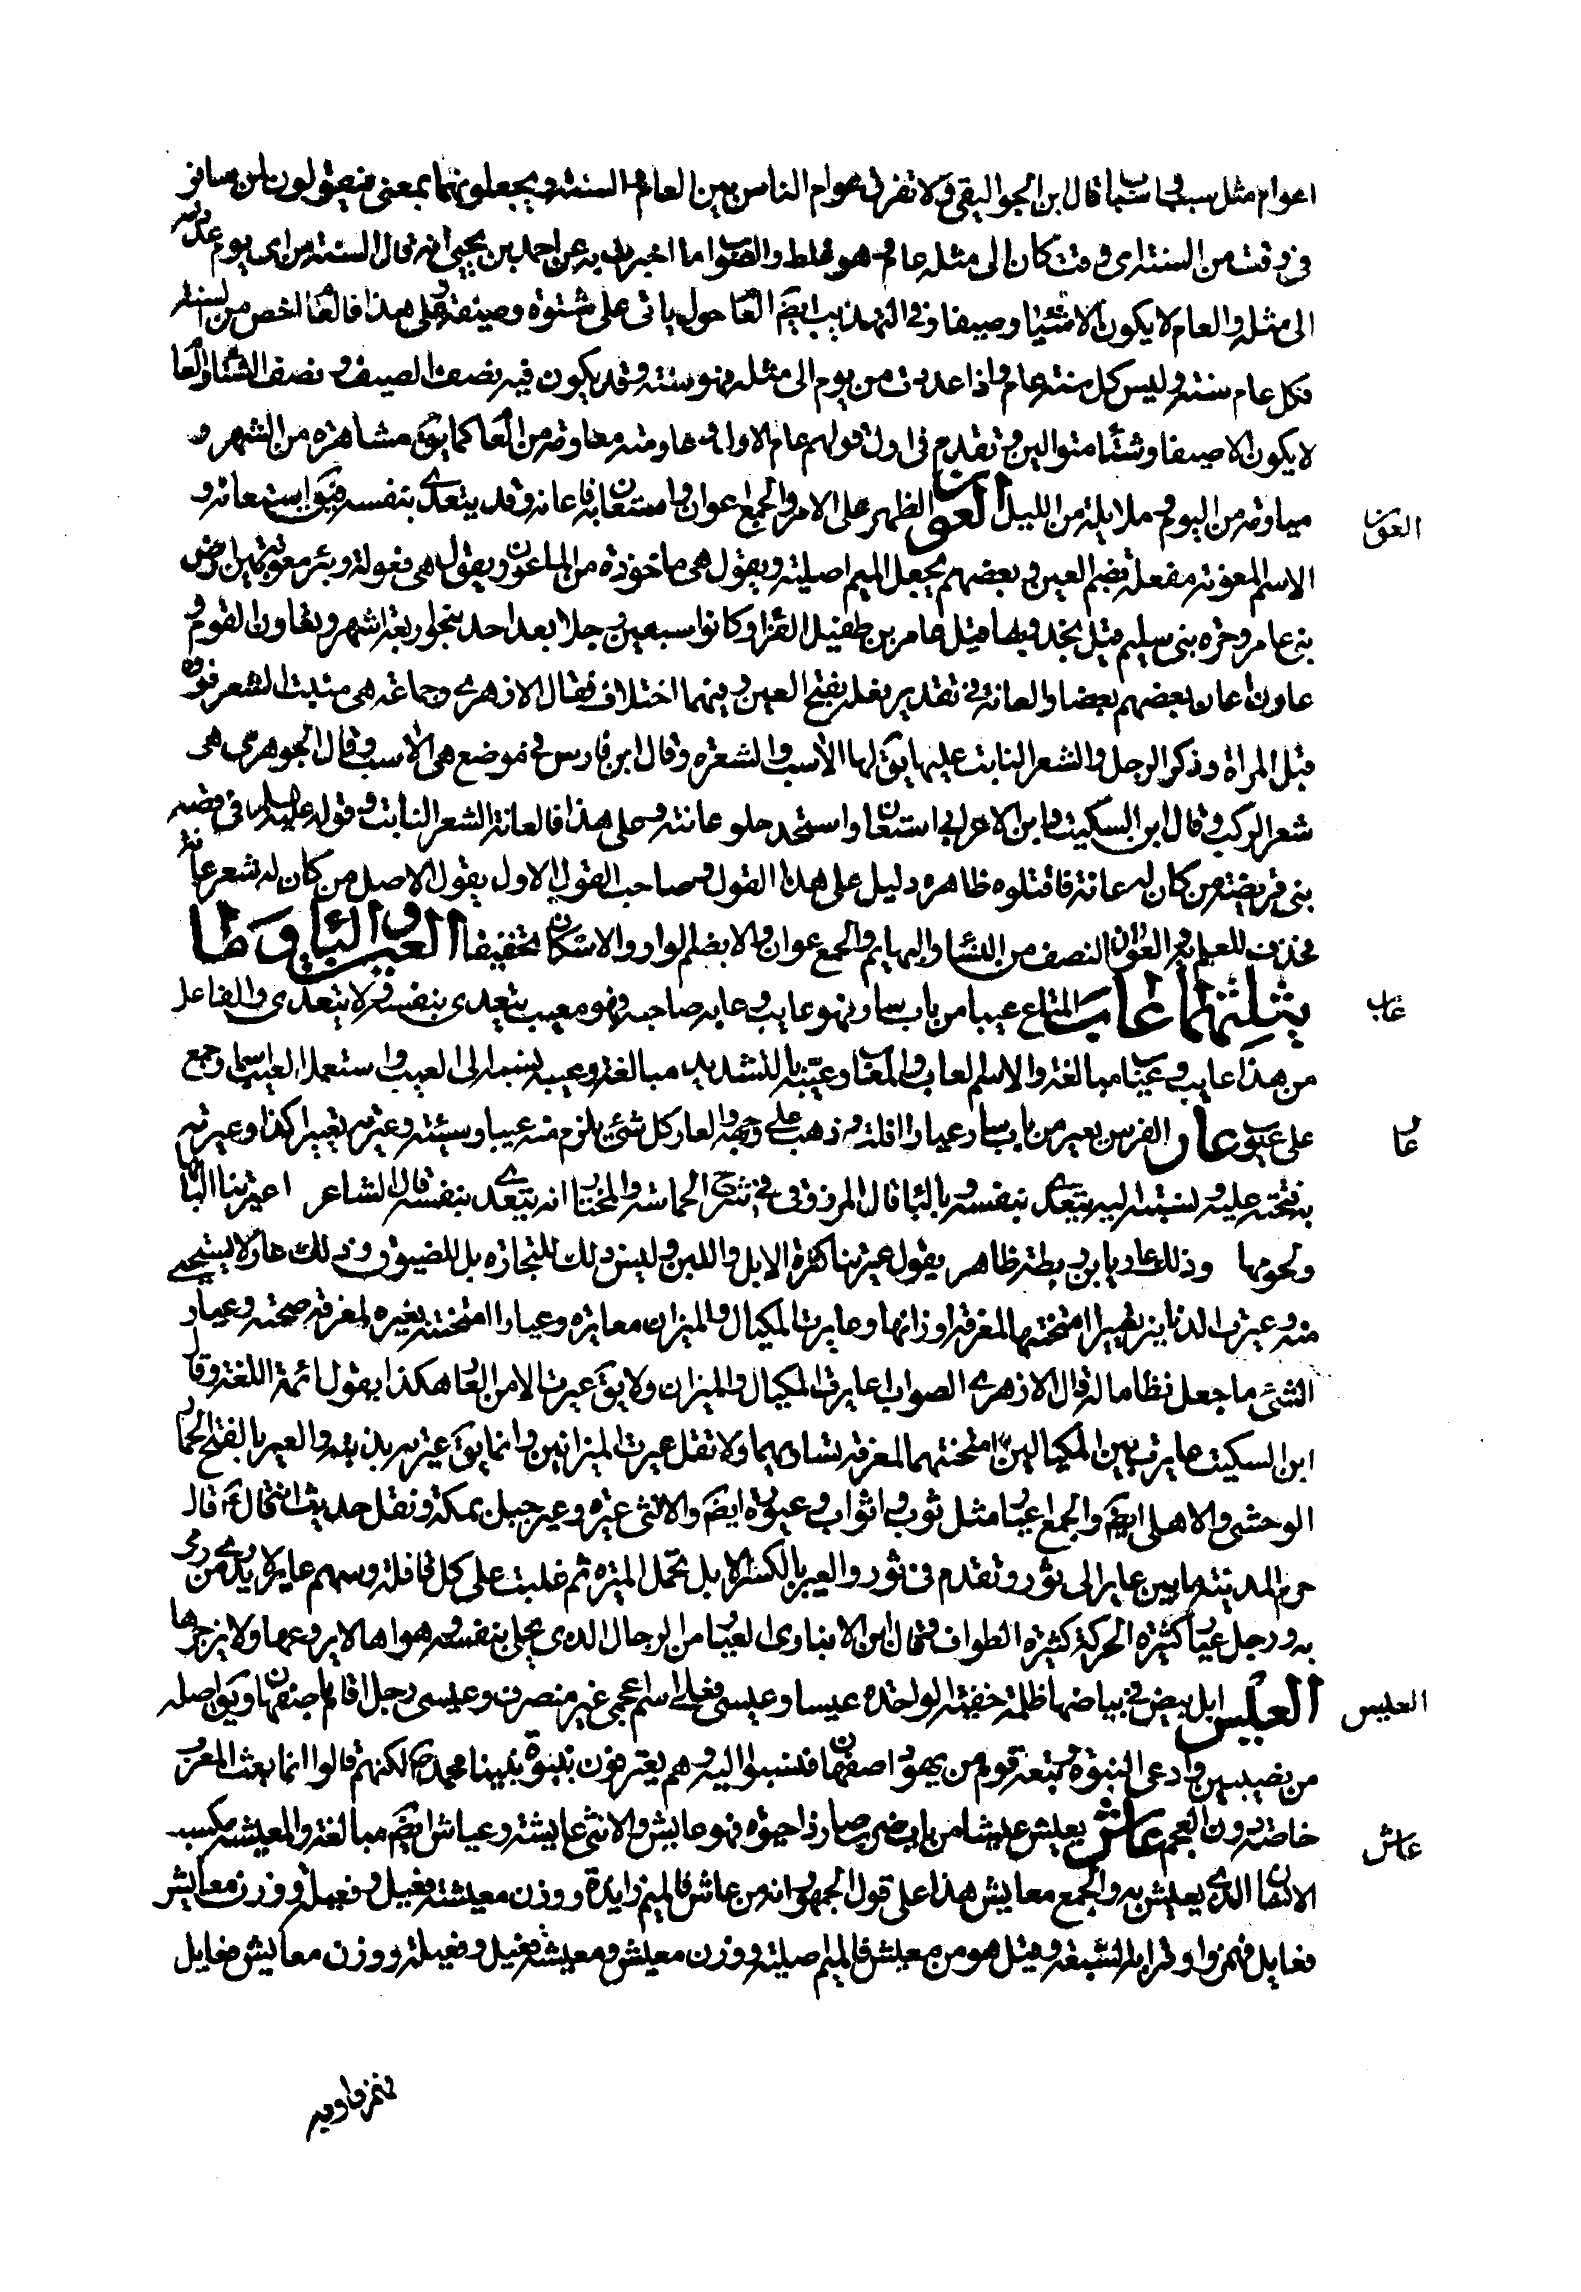 اعوام مثل سبب واسباب قال ابن الجواليقي ولا تفرق عوام الناس بين العام والسنة ويجعلونهما بمعنى فيقولون لمن سافر
في وقت من السنة اى وقت كان الى مثله عام وهو غلط والصواب ما اخبرت به عن احمد بن يحيى انه قال السنة من اى يوم عددته
الى مثله والعام لا يكون الا شتاء وصيفا وفي التهذيب ايضا العام حول ياتى على شتوة وصيفة وعلى هذا فالعام اخص من السنة
فكل عام سنة وليس كل سنة عام واذا عددت من يوم الى مثله فهو سنة وقد يكون فيه نصف الصيف ونصف الشتاء والعام
لا يكون الا صيفا وشتاء متوالين وتقدم في اول قولهم عام الاول وعاومته معاومة من العام كما يق مشاهرة من الشهر و
مياومة من اليوم وملايلة من الليل العون الظهير على الامر والجمع اعوان واستعان به فاعانه وقد يتعدى بنفسه فيق استعانه و
الاسم المعونة مفعلة بضم العين وبعضهم يجعل الميم اصلية ويقول هى ماخوذة من الماعون ويقول هى فعولة وبئر معونة بين ارض
بنى عامر وحرة بنى سليم قبل نجد وبها قتل عامر بن طفيل القراء وكانوا سبعين رجلا بعد احد بنحو اربعة اشهر وتعاون القوم و
عاونوا اعان بعضهم بعضا والعانة في تقدير فعلة بفتح العين وفيها اختلاف فقال الازهرى وجماعة هى منبت الشعر فوق
قبل المراة وذكر الرجل والشعر النابت عليها يق لها الاسب والشعرة وقال ابن فارس في موضع هى الاسب وقال الجوهرى هى
شعر الركب وقال ابن السكيت وابن الاعرابى استعان واستحد حلق عانته وعلى هذا فالعانة الشعر النابت وقوله عليه السلام في قصة
بنى قريظة من كان له عانة فاقتلوه ظاهره دليل على هذا القول وصاحب القول الاول يقول الاصل من كان له شعر عانة
فحذف للعلم به والعوان النصف من النساء والبهايم والجمع عون والاصل بضم الواو والاسكان تخفيفا العين والياء وما
يثلثهما عاب المتاع عيبا من باب سار فهو عايب وعابه صاحبه فهو معيب يتعدى بنفسه ولا يتعدى والفاعل
من هذا عايب وعياب مبالغة والاسم العاب والمعاب وعيبه بالتشديد مبالغة وعيبه نسبه الى العيب واستعمل العيب اسما وجمع
على عيوب عار الفرس يعير من باب سار عيارا افلت وذهب على وجهه والعار كل شئ يلزم منه عيب او سبة وعيرته كذا وعيرته
به قبحته عليه ونسبته اليه يتعدى بنفسه وبالباء قال المرزوقى في شرح الحماسة والمختار انه يتعدى بنفسه قال الشاعر اعيرتنا البانها
ولحومها وذلك عار يا ابن ريطة ظاهر يقول عيرتنا كثرة الابل واللبن وليس ذلك للتجارة بل للضيوف وذلك عار لا يستحيى
منه وعيرت الدنانير تعييرا امتحنتها لمعرفة اوزانها وعايرت المكيال والميزان معايرة وعيارا امتحنته بغيره لمعرفة صحته وعيار
الشئ ما جعل نظاما له قال الازهرى الصواب عايرت المكيال والميزان ولا يق عيرت الا من العار هكذا يقول ائمة اللغة وقال
ابن السكيت عايرت بين المكيالين امتحنتهما لمعرفة تساويهما ولا تقل عيرت الميزانين وانما يق عيرته بذنبه والعير بالفتح الحمار
الوحشى والاهلى ايضا والجمع اعيار مثل ثوب واثواب وعيورة ايضا والانثى عيرة وعير جبل بمكة ونقل حديث انه قال
حرم المدينة ما بين عاير الى ثور وتقدم في ثور والعير بالكسر الابل تحمل الميرة ثم غلبت على كل قافلة وسهم عاير لا يدرى من رمى
به ورجل عيار كثير الحركة كثير الطواف وقال ابن الانبارى العيار من الرجال الذى يخلى نفسه وهواها لا يروعها ولا يزجرها
العيس ابل بيض في بياضها ظلمة خفية الواحدة عيسا وعيسى فعلى اسم عجمى غير منصرف وعيسى رجل اقام باصفهان ويق اصله
من نصيبين وادعى النبوة وتبعه قوم من يهود اصفهان فنسبوا اليه وهم يعترفون بنبوة نبينا محمد ص لكنهم قالوا انما بعث للعرب
خاصة دون العجم عاش يعيش عيشا من باب ضرب صار ذا حيوة فهو عايش والانثى عايشة وعياش ايضا مبالغة والمعيشة مكسب
الانسان الذى يعيش به والجمع معايش هذا على قول الجمهور انه من عاش فالميم زايدة ووزن معيشة مفعيل ومفعلة ووزن معايش
مفاعل فلا يهمز وبه قرأ السبعة وقيل هو من معش فالميم اصلية ووزن معيش ومعيشة فعيل وفعيلة ووزن معايش فعايل
فتهمز وبه
العون
عاب
عار
العيس
عاش